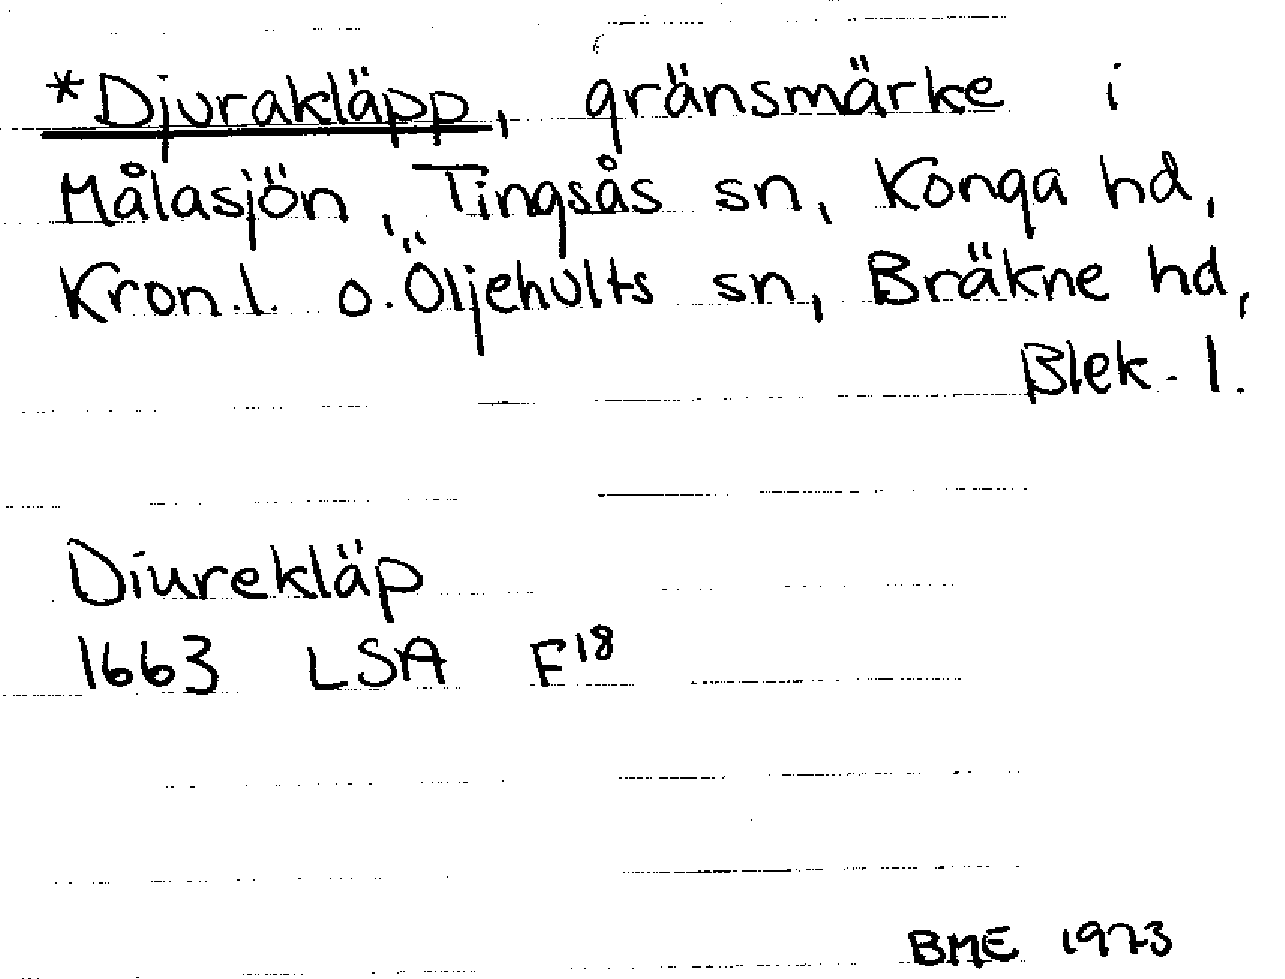 *Djurakläpp, gränsmärke i
Målasjön, Tingsås sn, Konga hd,
Kron.l. o. Öljehults sn, Bräkne hd,
Blek. l.
Diurekläp
1663 LSA F18
BME 1973